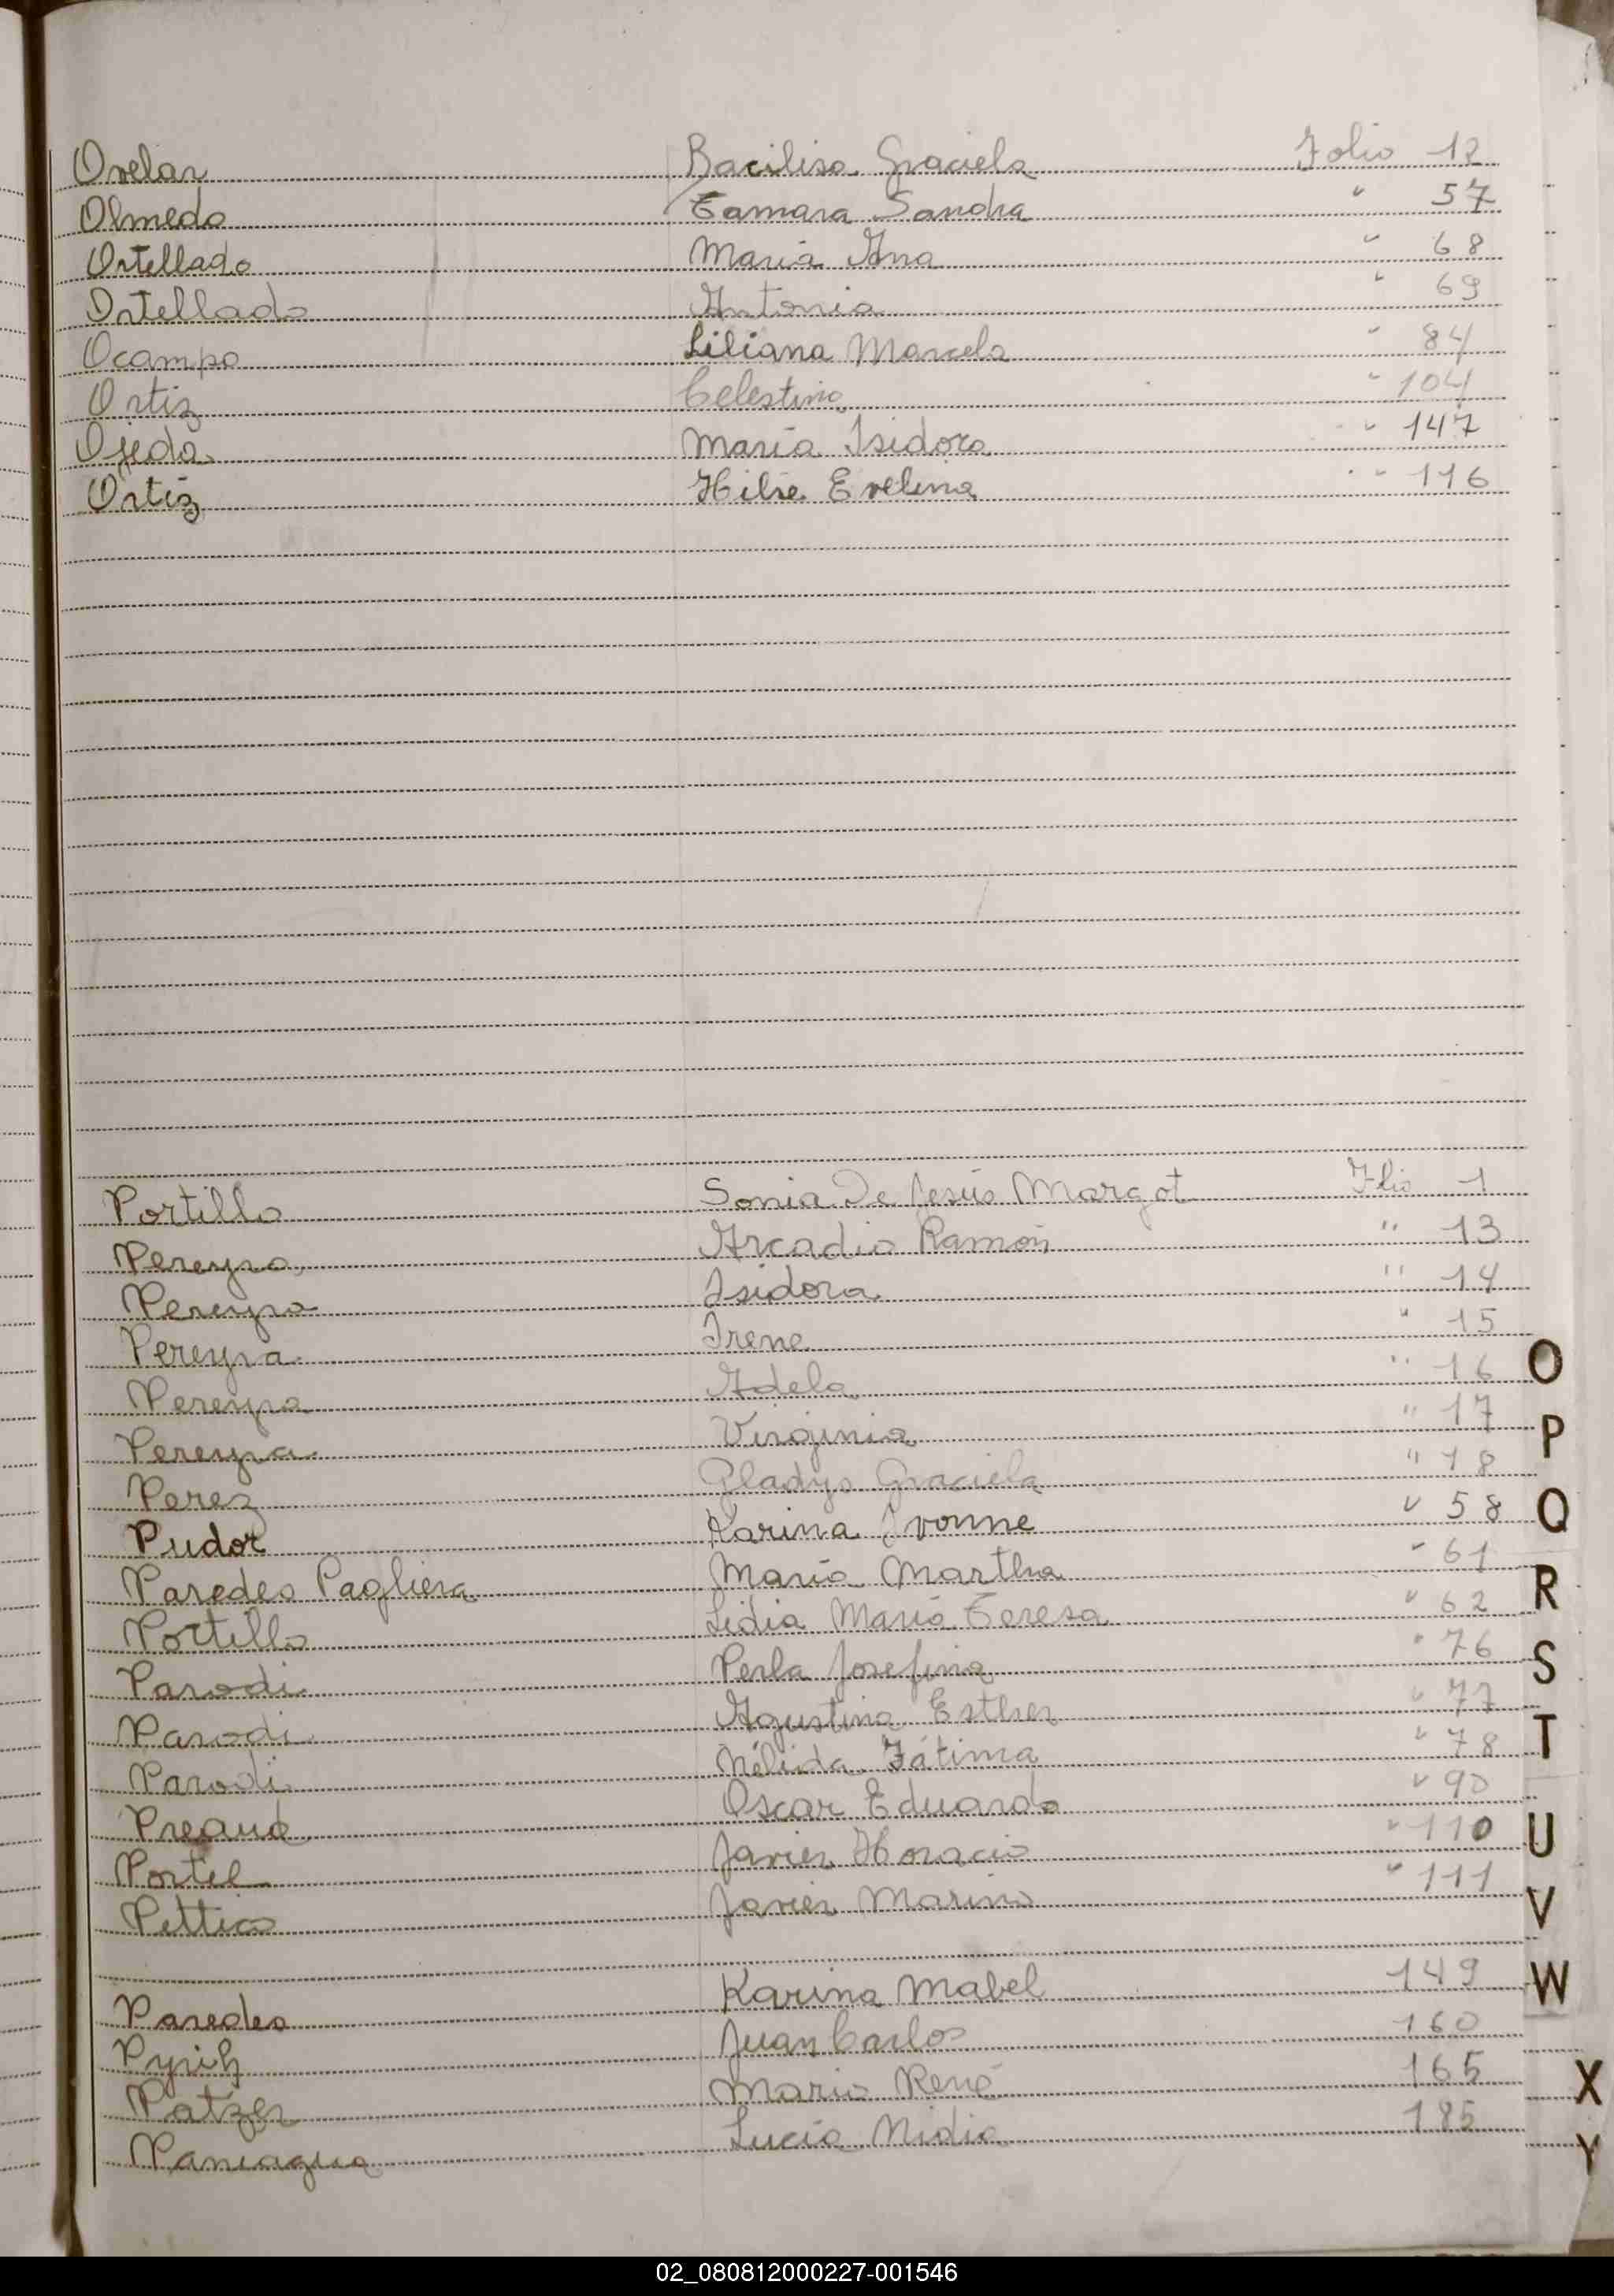 Ovelar Bacilisa Graciela Folio 12
Olmedo Tamara Sandra " 57
Ortellado Maria Ana " 68
Ortellado Antonia " 69
Ocampo Liliana Marcela " 84
Ortiz Celestino " 104
Ojeda María Isidora " 147
Ortiz Hilse Evelina " 116
Portillo Sonia De Jesús Margot Flio 1
Pereyra Arcadio Ramón " 13
Pereyra Isidora " 14
Pereyra Irene " 15
Pereyra Adela " 16
Pereyra Virginia " 17
Perez Gladys Graciela " 18
Pudor Karina Ivonne " 58
Paredes Pagliera María Martha " 61
Portillo Lidia María Teresa " 62
Parodi Perla Josefina " 76
Parodi Agustina Esther " 77
Parodi Nélida Fátima " 78
Preaud Oscar Eduardo " 90
Portel Javier Horacio " 110
Javier Marino " 111
Paredes Karina Mabel 149
Juan Carlos 160
Patzer Mario René 165
Paniagua Lucía Nidia 185
O
P
Q
R
S
T
U
V
W
X
Y
02_080812000227-001546